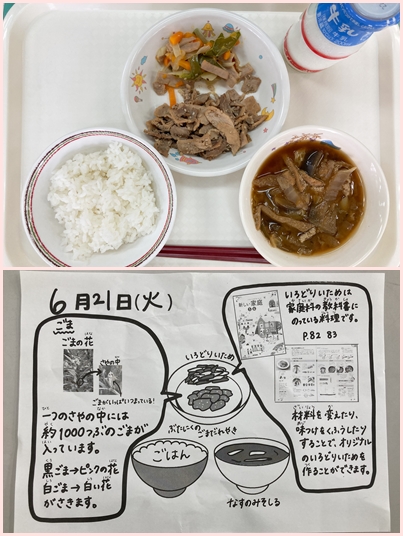 牛乳
6月21日(火)
ごま
ごまの花
さやの中
ごまがいっぱいつまっている!
一つのさやの中には
約1000つぶのごまが
入っています。
黒ごま→ピンクの花
白ごま→白い花
がさきます。
新しい家庭
いろどりいためは
家庭科の教科書に
のっている料理です。
P.82 83
いろどりいため
ぶたにくのごまだれやき
ごはん
なすのみそしる
材料を変えたり、
味つけをくふうしたり
することで、オリジナル
のいろどりいためを
作ることができます。